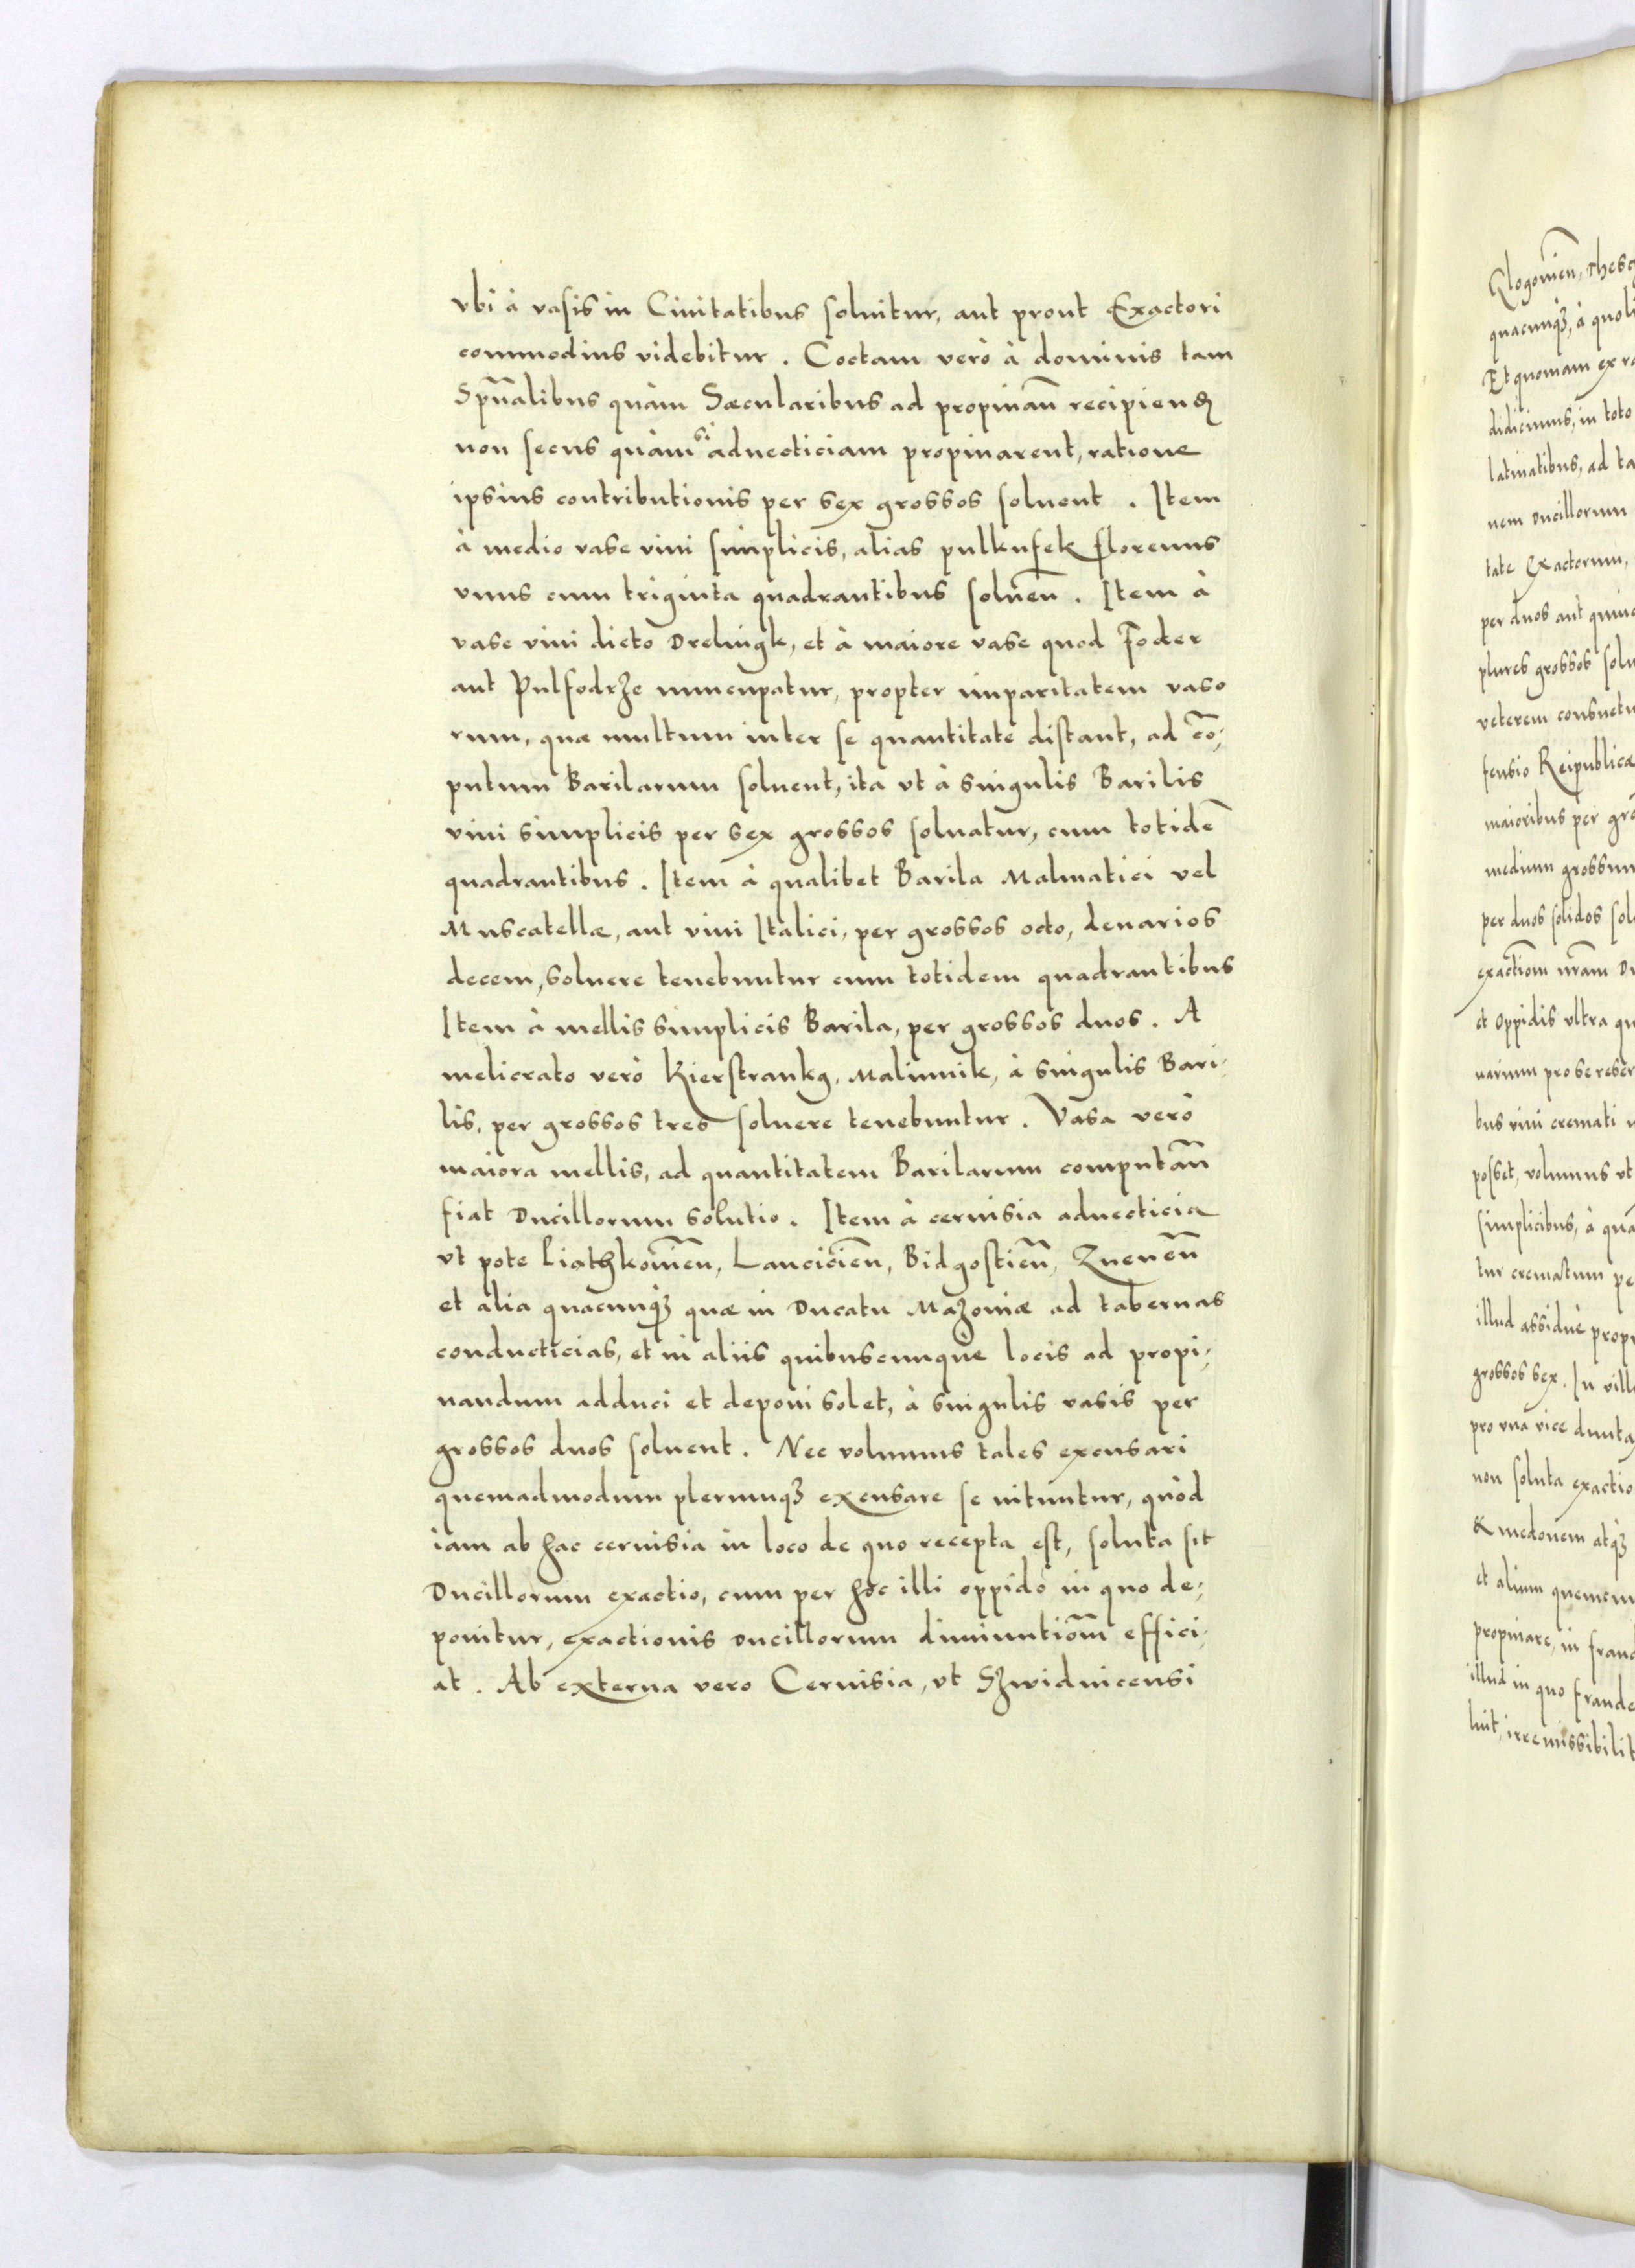 vbi à vasis in Ciuitatibus soluitur, aut prout Exactori
commodius videbitur. Coctam verò à dominis tam
Spũalibus quàm Sæcularibus ad propinañ recipienđ
non secus quàm si aduecticiam propinarent, ratione
ipsius contributionis per sex grossos soluent. Item
à medio vase vini simplicis, alias pulkufek florenus
vnus cum triginta quadrantibus solueñ. Item à
vase vini dicto Drelingk, et à maiore vase quod Foder
aut Pulfodrze nuncupatur, propter imparitatem vaso
rum, quæ multum inter se quantitate distant, ad cõ,
putum Barilarum soluent, ita vt à singulis Barilis
vini simplicis per sex grossos soluatur, cum totidẽ
quadrantibus. Item à qualibet Barila Malmatici vel
Muscatellæ, aut vini Italici, per grossos octo, denarios
decem, soluere tenebuntur cum totidem quadrantibus
Item à mellis simplicis Barila, per grossos duos. A
melicrato verò Kierstrankg, Malinnik, à singulis Bari,
lis, per grossos tres soluere tenebuntur. Vasa verò
maiora mellis, ad quantitatem Barilarum computañ
fiat Ducillorum solutio. Item à ceruisia aduecticia
vt pote Piathkowieñ, Lancicieñ, Bidgostieñ, Zneneñ
et alia quacunqꝫ quæ in Ducatu Mazoniæ ad tabernas
conducticias, et in aliis quibuscunque locis ad propi,
nandum adduci et deponi solet, à singulis vasis per
grossos duos soluent. Nec volumus tales excusari
quemadmodum plerunqꝫ excusare se nituntur, quòd
iam ab hac ceruisia in loco de quo recepta est, soluta sit
Ducillorum exactio, cum per hoc illi oppido in quo de,
ponitur, exactionis Ducillorum diminutiõm effici,
at. Ab externa vero Ceruisia, vt Szwidnicensi
quacunqꝫ, à quoli
didicimus, in toto
latinatibus, ad ta
nem Ducillorum
tate Exactorum,
per duos aut quinq
plures grossos solu
veterem consuetu
fensio Reipublicæ
maioribus per gro
medium grossum
per duos solidos sol
et Oppidis vltra qu
bus vini cremati
posset, volumus vt
simplicibus, à qua
tur crematum pe
illud assiduè prop
grossos sex. In vill
pro vna vice dunta
non soluta exactio
& medonem atqꝫ
et alium quemcun
propinare, in fraud
illud in quo fraude
luit, irremissibilit